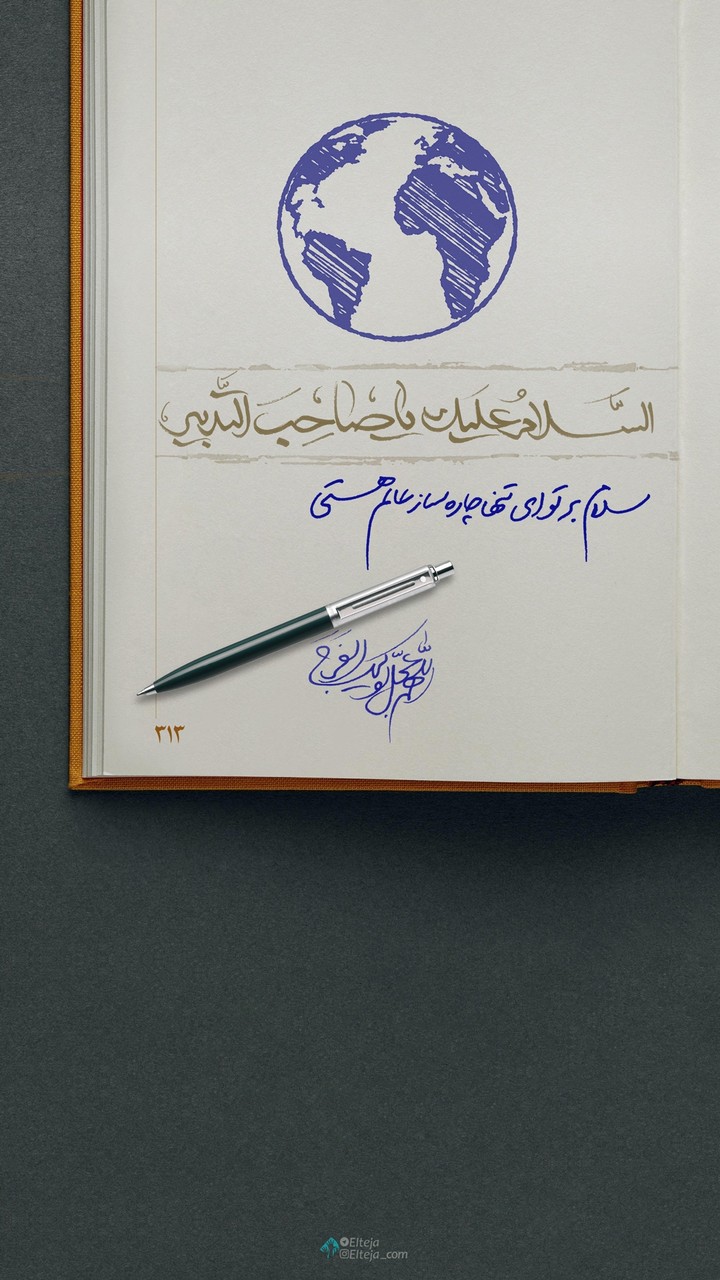 السَّلامُ عليك يا صاحِبَ التَّدبير
سلام بر تو ای تنها چاره ساز عالم هستی
اللهم عجل لوليك الفرج
٣١٣
Elteja
Elteja_com